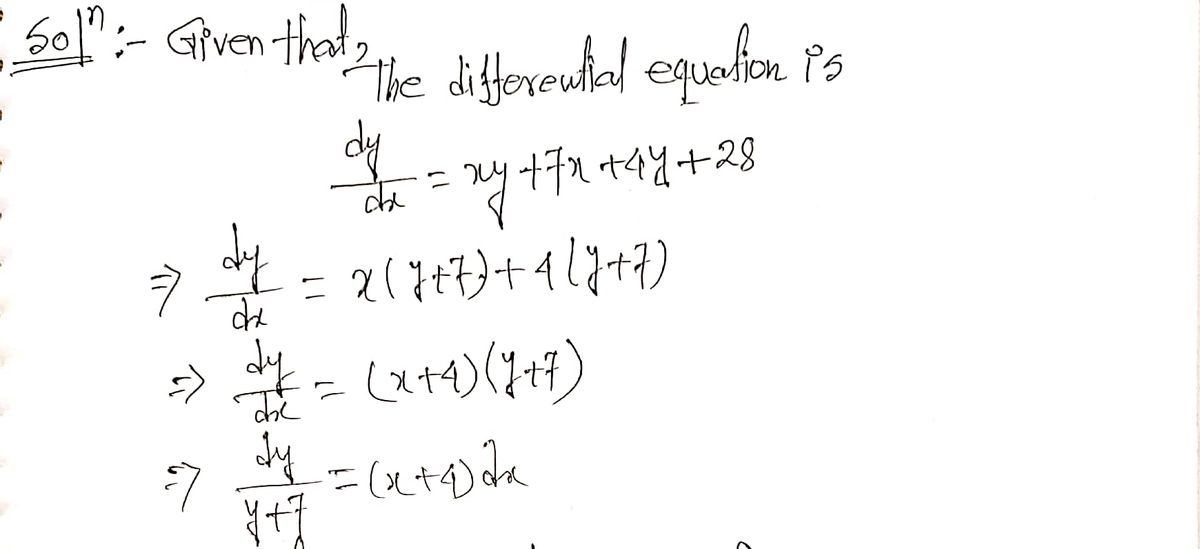 Solⁿ :- Given that,
The differential equation is
dy/dx = xy + 7x + 4y + 28
⇒ dy/dx = x(y+7) + 4(y+7)
⇒ dy/dx = (x+4)(y+7)
⇒ dy/y+7 = (x+4) dx